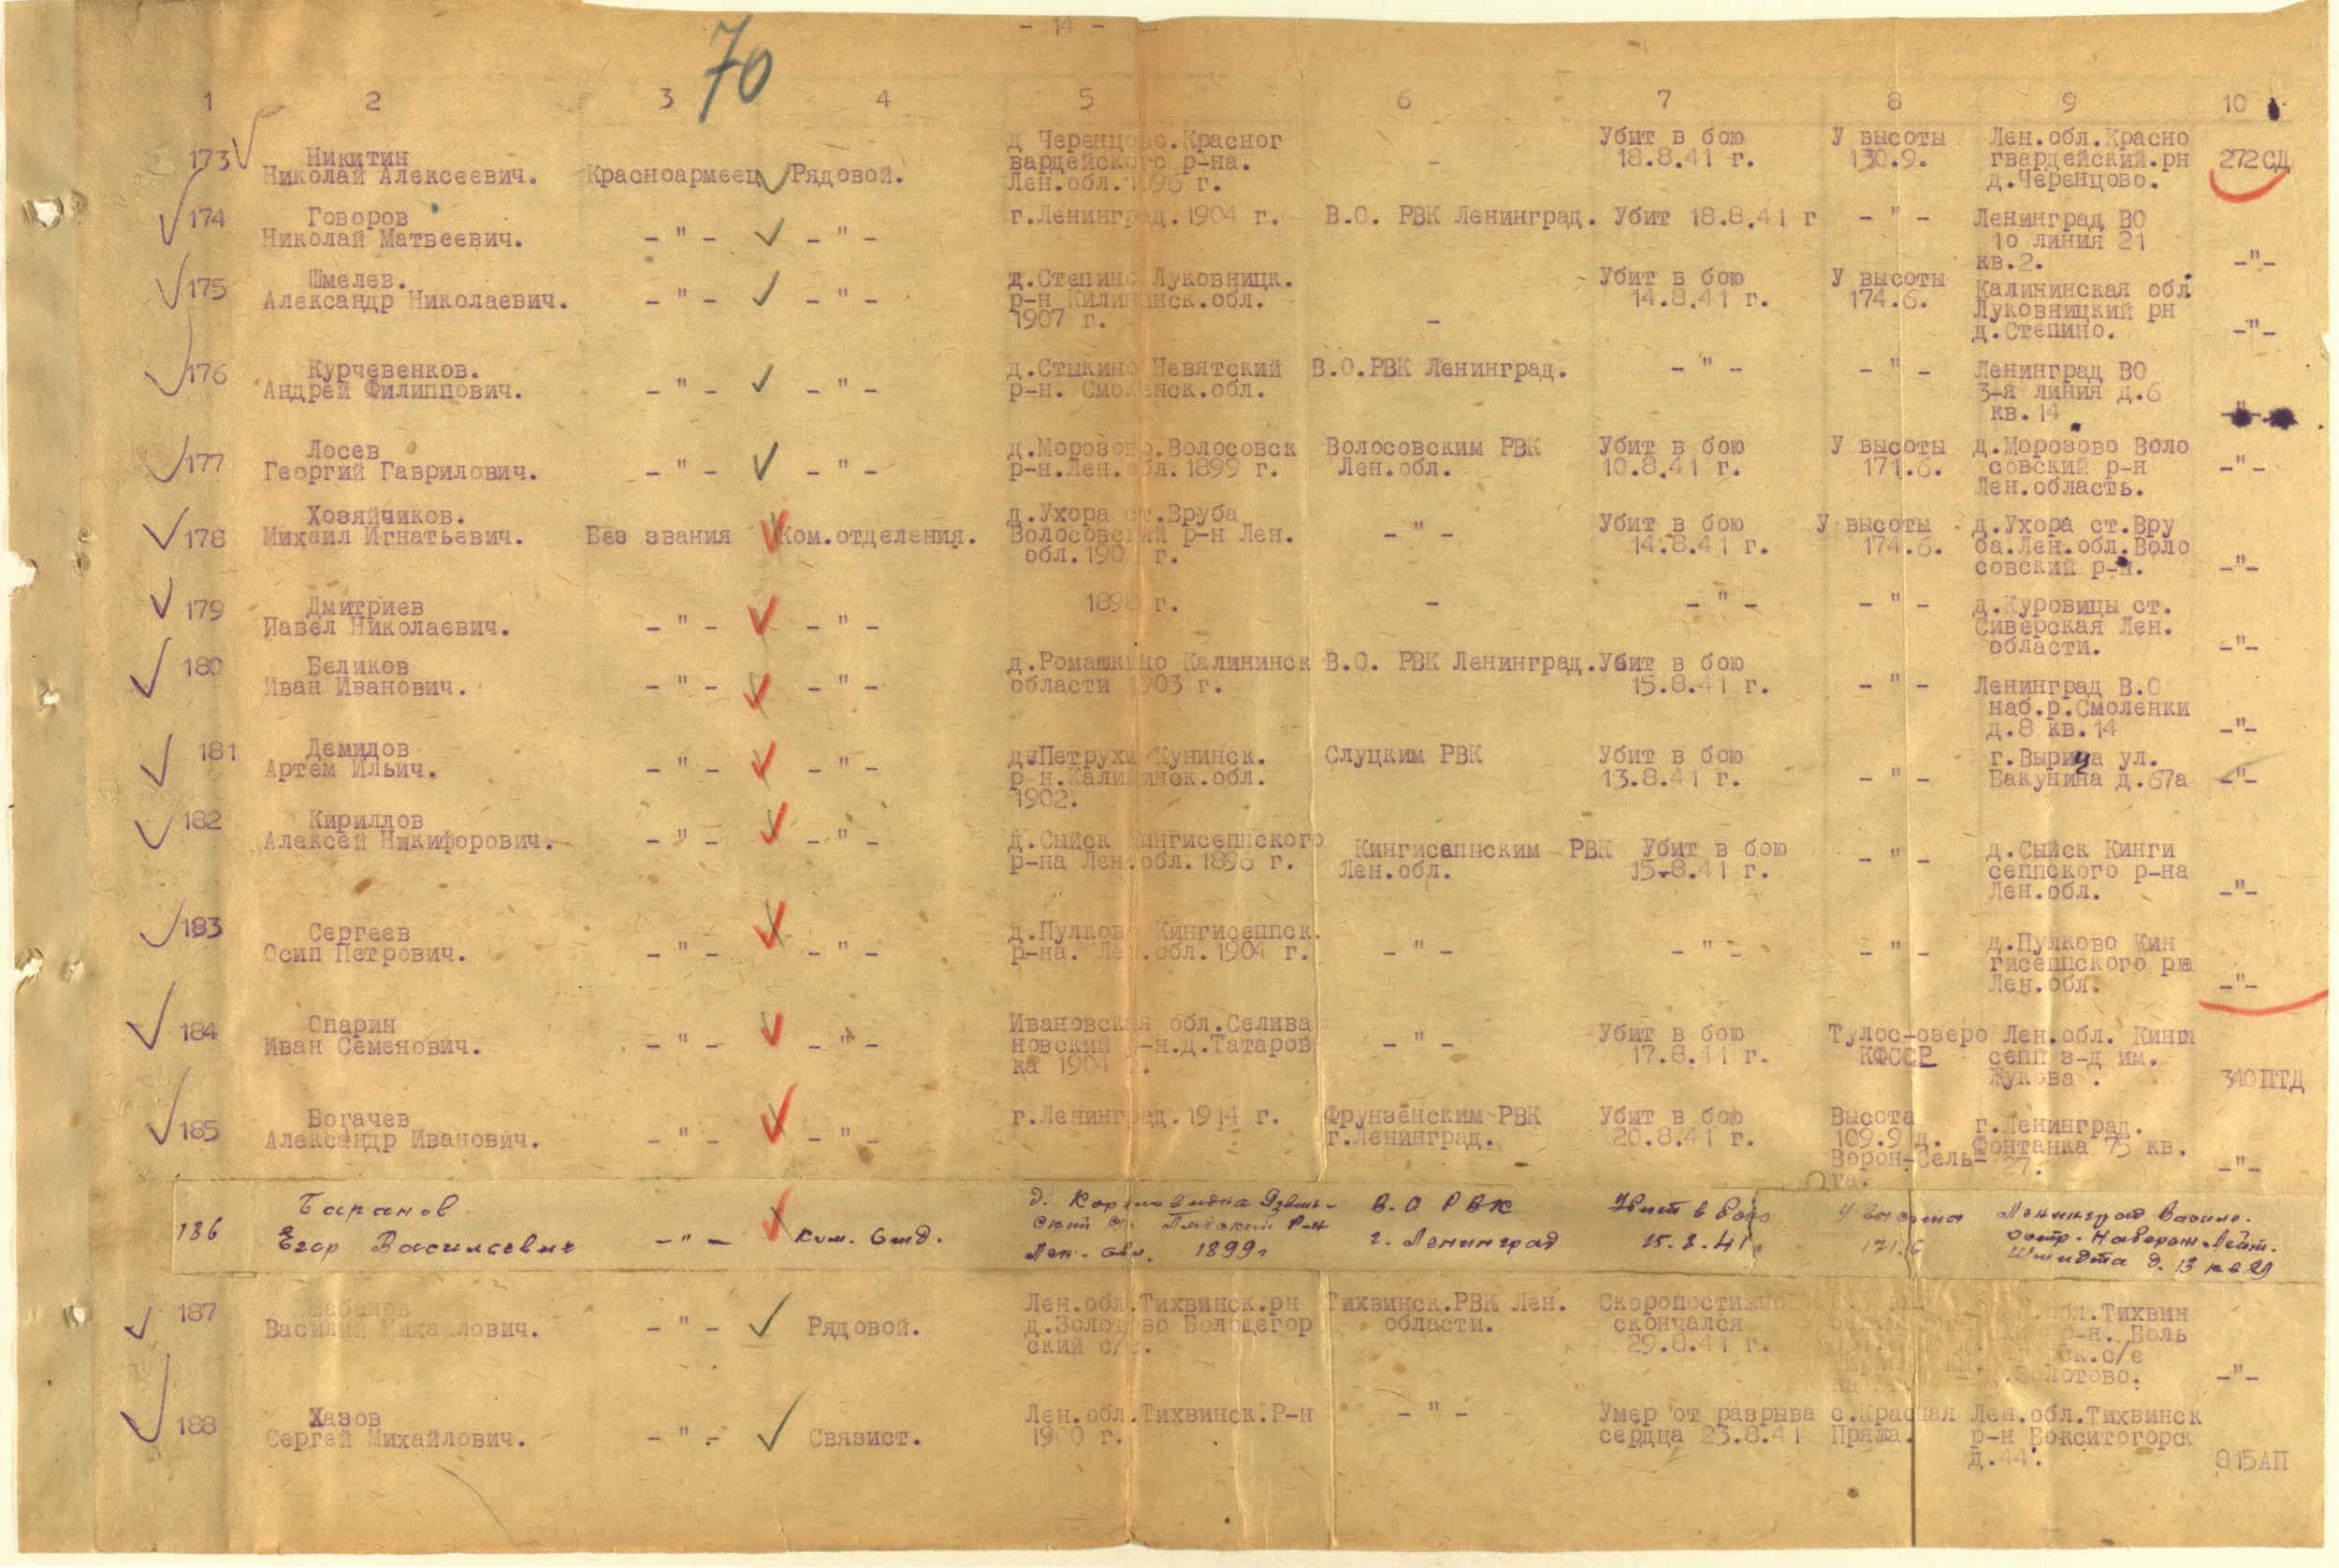 - 14 -
70
1 2 3 4 5 6 7 8 9 10
173 Никитин
Николай Алексеевич. Красноармеец Рядовой.
д Черенцово.Красног
вардейского р-на.
Лен.обл.1896 г.
-
Убит в бою
18.8.41 г.
У высоты
130.9.
Лен.обл.Красно
гвардейский.рн
д.Черенцово.
272СД
174 Говоров
Николай Матвеевич. - " - - " -
г.Ленинград.1904 г. В.О. РВК Ленинград. Убит 18.8.41 г - " -
Ленинград ВО
10 линия 21
кв.2.
-"-
175 Шмелев.
Александр Николаевич. - " - - " -
д.Степино Луковницк.
р-н Килининск.обл.
1907 г.
-
Убит в бою
14.8.41 г.
У высоты
174.6.
Калининская обл
Луковницкий рн
д.Степино.
-"-
176 Курчевенков.
Андрей Филиппович. - " - - " -
д.Стыкино Невятский
р-н. Смоленск.обл.
В.О.РВК Ленинград. - " - - " -
Ленинград ВО
3-я линия д.6
кв.14
-"-
177 Лосев
Георгий Гаврилович. - " - - " -
д.Морозово.Волосовск
р-н.Лен.обл.1899 г.
Волосовским РВК
Лен.обл.
Убит в бою
10.8.41 г.
У высоты
171.6.
д.Морозово Воло
совский р-н
Лен.область.
-"-
178 Хозяйчиков.
Михаил Игнатьевич. Без звания Ком.отделения.
д.Ухора ст.Вруба
Волосовский р-н Лен.
обл.190 г.
- " -
Убит в бою
14.8.41 г.
У высоты
174.6.
д.Ухора ст.Вру
ба.Лен.обл.Воло
совский р-н.
-"-
179 Дмитриев
Павел Николаевич. - " - - " -
1898 г. - - " - - " -
д.Куровицы ст.
Сиверская Лен.
области.
-"-
180 Беликов
Иван Иванович. - " - - " -
д.Ромашкино Калининск
области 1903 г.
В.О. РВК Ленинград.
Убит в бою
15.8.41 г.
- " -
Ленинград В.О
наб.р.Смоленки
д.8 кв.14
-"-
181 Демидов
Артем Ильич. - " - - " -
д.Петрухи Кунинск.
р-н.Калининск.обл.
1902.
Слуцким РВК
Убит в бою
13.8.41 г.
- " -
г.Вырица ул.
Бакунина д.67а
-"-
182 Кириллов
Алексей Никифорович. - " - - " -
д.Сыйск Кингисеппского
р-на Лен.обл.1896 г.
Кингисеппским - РВК
Лен.обл.
Убит в бою
15-8.41 г.
- " -
д.Сыйск Кинги
сеппского р-на
Лен.обл.
-"-
183 Сергеев
Осип Петрович. - " - - " -
д.Пулково Кингисеппск.
р-на. Лен.обл.1904 г.
- " - - " - - " -
д.Пулково Кин
гисеппского рна
Лен.обл.
-"-
184 Спарин
Иван Семенович. - " - - " -
Ивановская обл.Селива
новский р-н.д.Татаров
ка 1904 г.
- " -
Убит в бою
17.8.41 г.
Тулос-озеро
КФССР
Лен.обл. Кинги
сепп з-д им.
Жукова .
340ПТД
185 Богачев
Александр Иванович. - " - - " -
г.Ленинград.1914 г.
Фрунзенским РВК
г.Ленинград.
Убит в бою
20.8.41 г.
Высота
109.9 д.
Ворон-Сель-
га.
г.Ленинград.
Фонтанка 75 кв.
27.
-"-
186 Баранов
Егор Васильевич - " - Ком. Отд.
д.
Лен. обл. 1899г
В.О РВК
г. Ленинград
Убит в бою
15.8.41г
У высота
171.6
Ленинград Васил.
остр. Набереж. Лейт.
Шмидта д. 13 кв 29
187 Шабанов
Василий Михайлович. - " - Рядовой.
Лен.обл.Тихвинск.рн
д.Золотово Болшегор
ский с/с.
Тихвинск.РВК Лен.
области.
Скоропостижно
скончался
29.8.41 г.
обл.Тихвин
р-н. Боль
ск.с/с
Золотово.
-"-
188 Хазов
Сергей Михайлович. - " - Связист.
Лен.обл.Тихвинск.Р-н
1900 г.
- " -
Умер от разрыва
сердца 23.8.41
с.Красная
Пряжа.
Лен.обл.Тихвинск
р-н Бокситогорск
д.44.
815АП